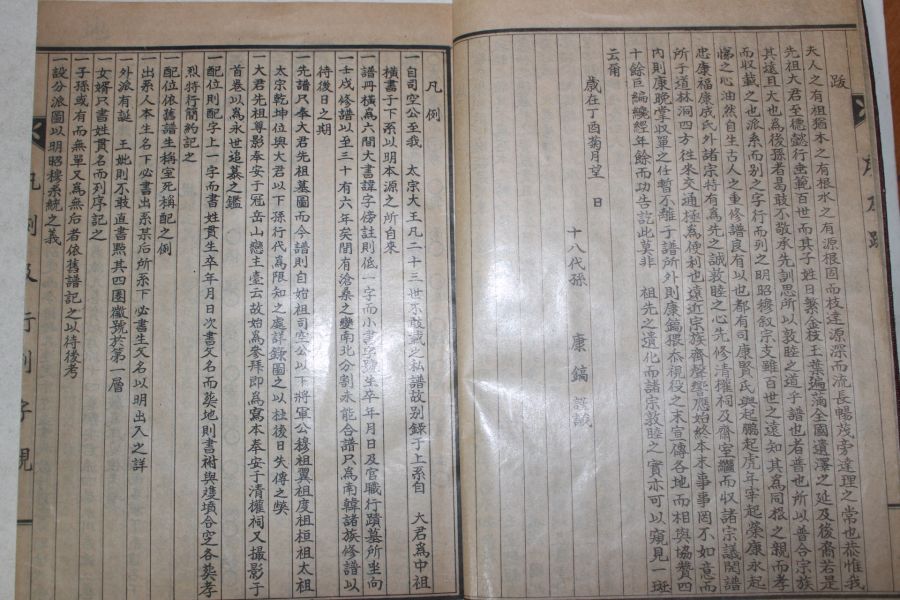 跋
夫人之有祖猶木之有根水之有源根固而枝達原深而流長暢茂旁達理之常也恭惟我
先祖大君至德懿行垂範百世而其子姓日繁金枝玉葉遍滿全國遺澤之延及後裔若是
其遠且大也為後孫者曷敢不敬承先訓思所以敦睦之道乎譜也者普也所以普合宗族
而収載之也派系而別之字行而列之明昭穆叙宗支雖百世之遠知其為同根之親而孝
悌之心油然自生古人之重修譜良有以也都有司康賢氏與起鵬起虎年宰起榮康永起
忠康福康成氏外諸宗特有為先之誠敦睦之心先修清權祠及齋室繼而収諸宗議開譜
所于道林洞四方往來交通極為便利也遠近宗族齊聲響應始終本末事事罔不如意而
內則康晚掌収單之任暫不離于譜所外則康鎬猥忝視役之末宣傳各地而相與協贊四
十餘巨編纔經年餘而功告訖此莫非 祖先之遺化而諸宗敦睦之實亦可以窺見一斑
云爾
歲在丁酉菊月望 日
十八代孫 康鎬 謹識
凡例
一自司空公至我 太宗大王凡二十三世亦敢載之私譜故別錄于上系自 大君為中祖
橫書于下系以明本源之所自來
一譜冊橫為六間大書諱字傍註則低一字而小書字號生卒年月日及官職行蹟墓所坐向
一壬戌修譜以至三十有六年矣間有滄桑之變南北分割未能合譜只為南韓諸族修譜以
待後日之期
一先譜只奉大君先祖墓圖而今譜則自始祖司空公以下將軍公穆祖翼祖度祖桓祖太祖
太宗乾坤位與大君以下孫行代為限知之處詳錄圖之以杜後日失傳之獘
一大君先祖尊影奉安于冠岳山戀主臺云故始為參拜即為寫本奉安于清權祠又撮影于
首卷以為永世追慕之鑑
一配位則配字上一字而書姓貫生卒年月日次書父名而葬地則書祔與雙墳合窆各葬孝
烈特行簡約記之
一配位依舊譜生稱室死稱配之例
一出系人本生名下必書出系某后所系下必書生父名以明出入之詳
一外派有誕 王妣則不敢直書點其四圍徽號於第一層
一女婿只書姓貫名而列序記之
一子孫或有而無單又為無后者依舊譜記之以待後考
一設分派圖以明昭穆系統之義